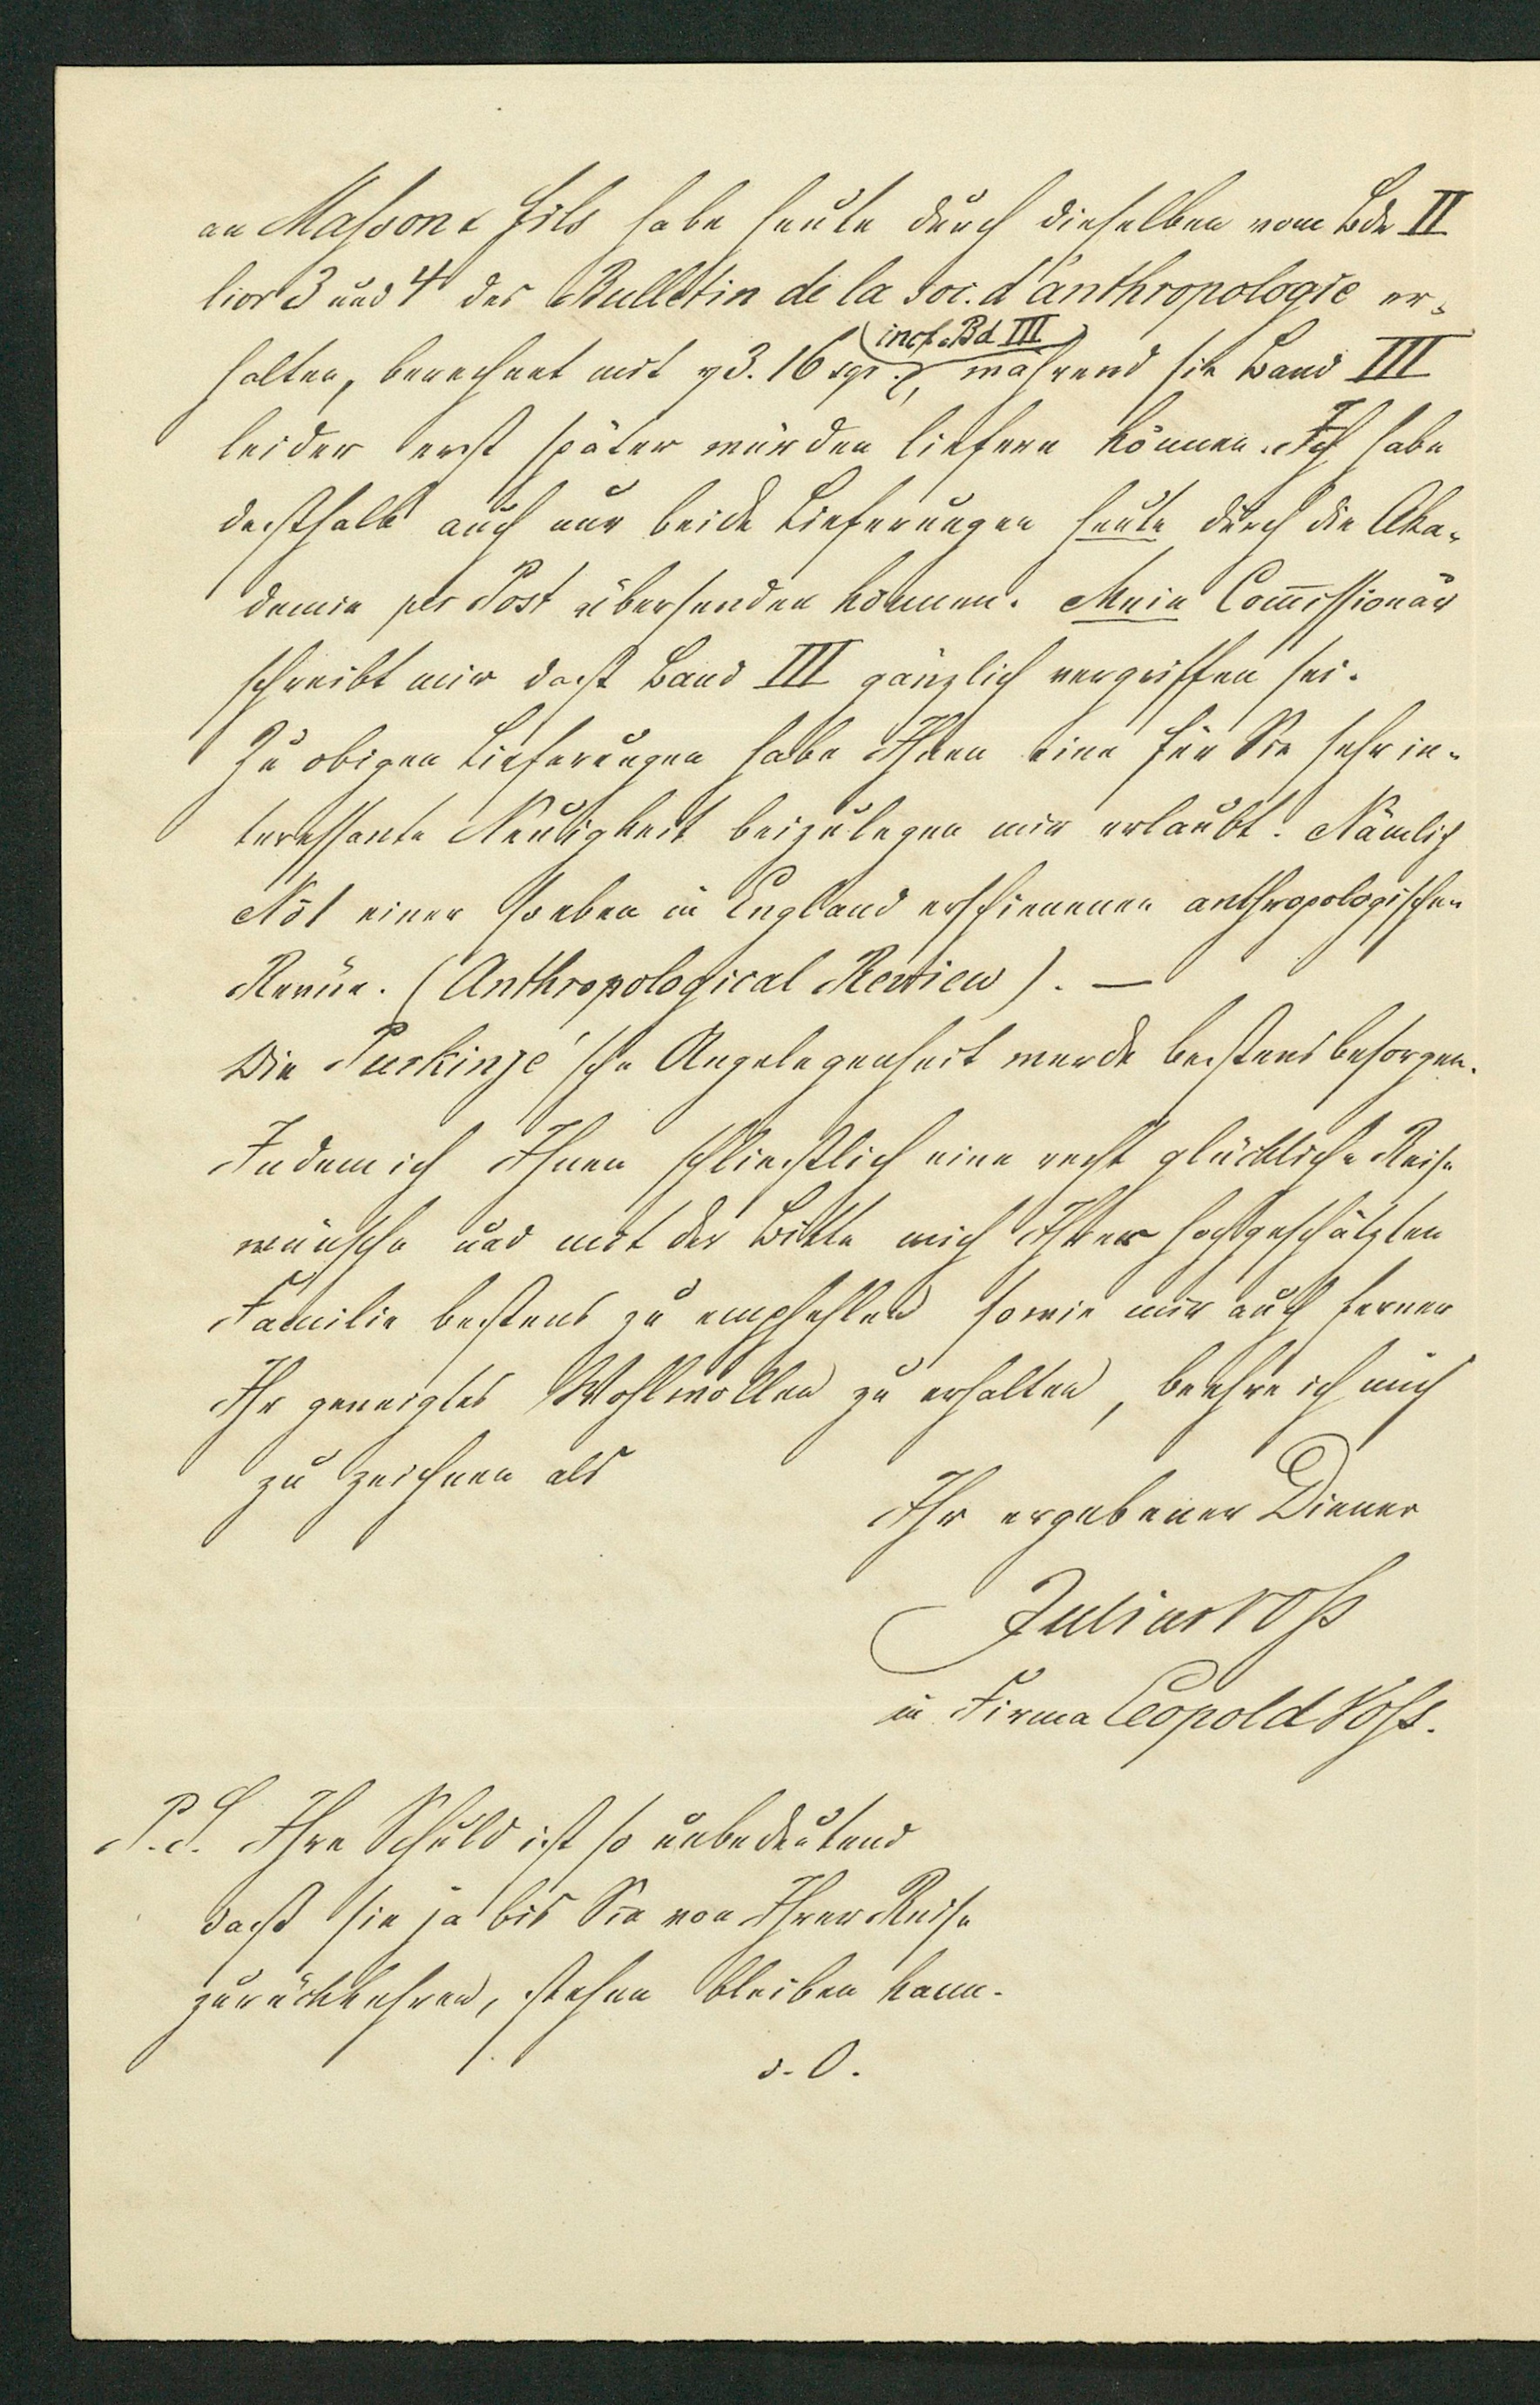 an Masson & fils habe heute durch dieselben vom Bde II
livr 3 und 4 des Bulletin de la soc. d'anthropologie er-
(incl. Bd III)
halten, berechnet mit 3. 16 sgr., während sie Band III
leider erst später würden liefern können. Ich habe
desshalb auch nur beide Lieferungen heute durch die Aka-
demie per Post übersenden können. Mein Com̅issionär
schreibt mir dass Band III gänzlich vergriffen sei.
Zu obigen Lieferungen habe Ihnen eine für Sie sehr in-
teressante Neuigkeit beizulegen mir erlaubt. Nämlich
No 1 einer soeben in England erschienenen anthropologischen
Revüe. (Anthropological Review). —
Die Purkinje'sche Angelegenheit werde bestens besorgen.
Indem ich Ihnen schliesslich eine recht glückliche Reise
wünsche und mit der Bitte mich Ihrer hochgeschätzten
Familie bestens zu empfehlen sowie mir auch ferner
Ihr geneigtes Wohlwollen zu erhalten, beehre ich mich
zu zeichnen als
Ihr ergebener Diener
Julius Voss
in Firma Leopold Voss.
P.S. Ihre Schuld ist so unbedeutend
dass sie ja bis Sie von Ihrer Reise
zurückkehren, stehen bleiben kann.
d. O.